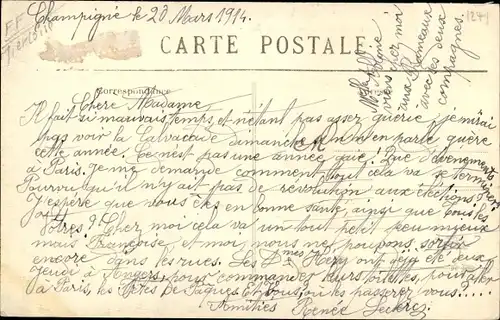 Champigné le 20 Mars 1914.
CARTE POSTALE
Correspondance
Chère Madame
Il fait si mauvais temps, et n'étant pas assez guérie, je n'irai
pas voir la Cavalcade dimanche. On n'en parle guère
cette année. Ce n'est pas une année gaie! Que d'évènements
à Paris. Je me demande comment tout cela va se terminer,
Pourvu qu'il n'y ait pas de révolution aux élections.
J'espère que vous êtes en bonne santé, ainsi que tous les
vôtres? Chez moi cela va un tout petit peu mieux
mais Françoise et moi, nous ne pouvons sortir
encore dans les rues. Les Dmes Héry ont déjà été deux
jeudi à Angers, pour commander leurs toilettes, pour aller
à Paris, les fêtes de Pâques. Et vous, où les passerez vous?....
Amitiés Renée Leclerc
viens chez moi
aux Rameaux
avec les deux
compagnes.
1271